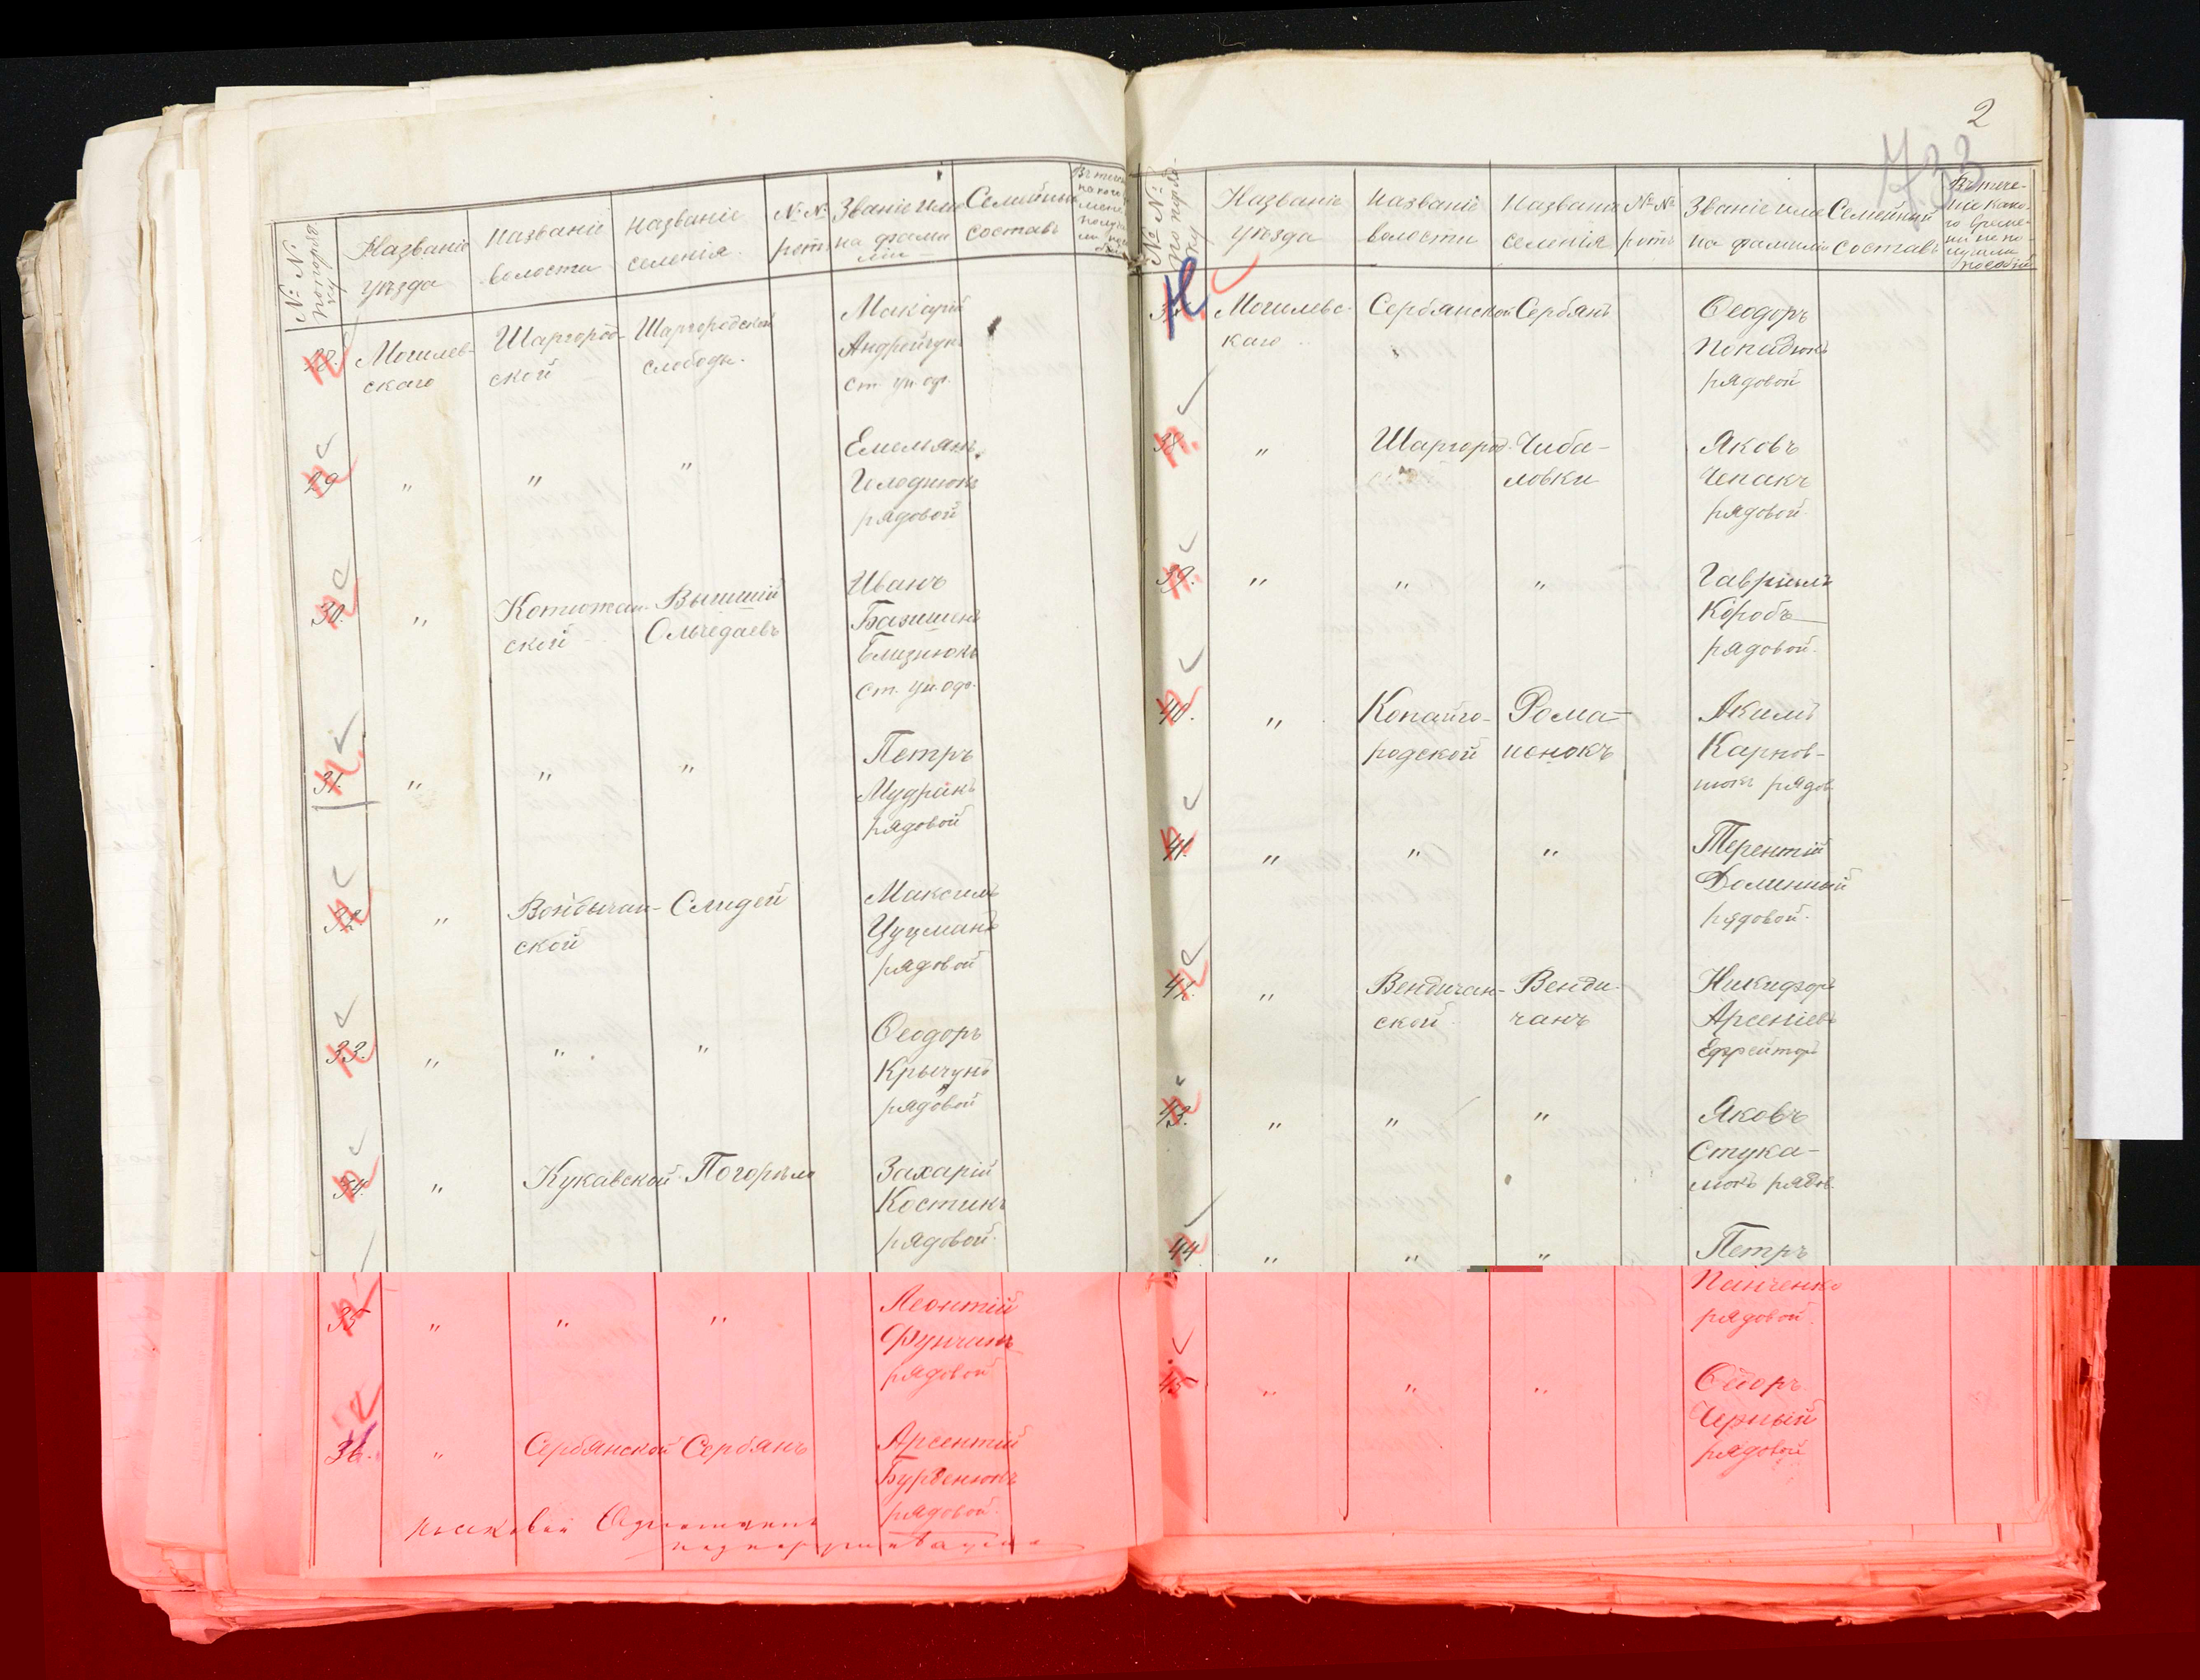 № №
по порядку
Названіе
уѣзда
Названіе
волости
Названіе
селенія.
№ №
ротъ
Званіе или
на фами
ліи
Семейный
составъ
28.
Могилев-
скаго
Шаргород-
ской
Шаргородской
слободы.
Макарій
Андрейчукъ
ст. ун. оф.
29
"
"
"
Емельянъ
рядовой
30.
"
Котюжан-
ской
Вышшій
Ольчедаевъ
Иванъ
Близнюкъ
ст. ун. оф.
31.
"
"
"
Петръ
Мудрикъ
рядовой
32
"
ской
Слидей
Максимъ
Цуцманъ
рядовой
33.
"
"
"
Ѳеодоръ
Крычунъ
рядовой
34.
"
Кукавской
Погорѣло
Захарій
Костикъ
рядовой.
35
"
"
"
Леонтій
рядовой
36.
"
Сербянской
Сербянъ
Арсентій
Бурденюкъ
рядовой.
2
733
№ №
по порядку
Названіе
уѣзда
Названіе
волости
Названіе
селенія
№ №
ротъ
Званіе или
на фамилію
Семейный
составъ
Въ тече-
ніи како-
го време-
ни не по-
лучали
пособій
Могилевс-
каго
Сербянской
Сербянъ
Ѳеодоръ
Попадюкъ
рядовой
38.
"
Шаргород-
Чиба-
ловки
Яковъ
Чепакъ
рядовой.
39.
"
"
"
Гавріилъ
Коробъ
рядовой.
40.
"
Копайго-
родской
Рома-
нокъ
Акимъ
Карпов-
рядов.
41.
"
"
"
Терентій
Долинный
рядовой.
"
Вендичан-
ской
Венди-
чанъ
Никифоръ
Арсеніевъ
Ефрейторъ
43.
"
"
"
Яковъ
Стука-
люкъ рядов.
44
"
"
"
Петръ
Панченко
рядовой.
45
"
"
"
Ѳедоръ
Черный
рядовой